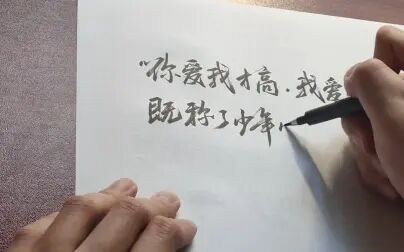 “你爱我才高，我爱
既称了少年心